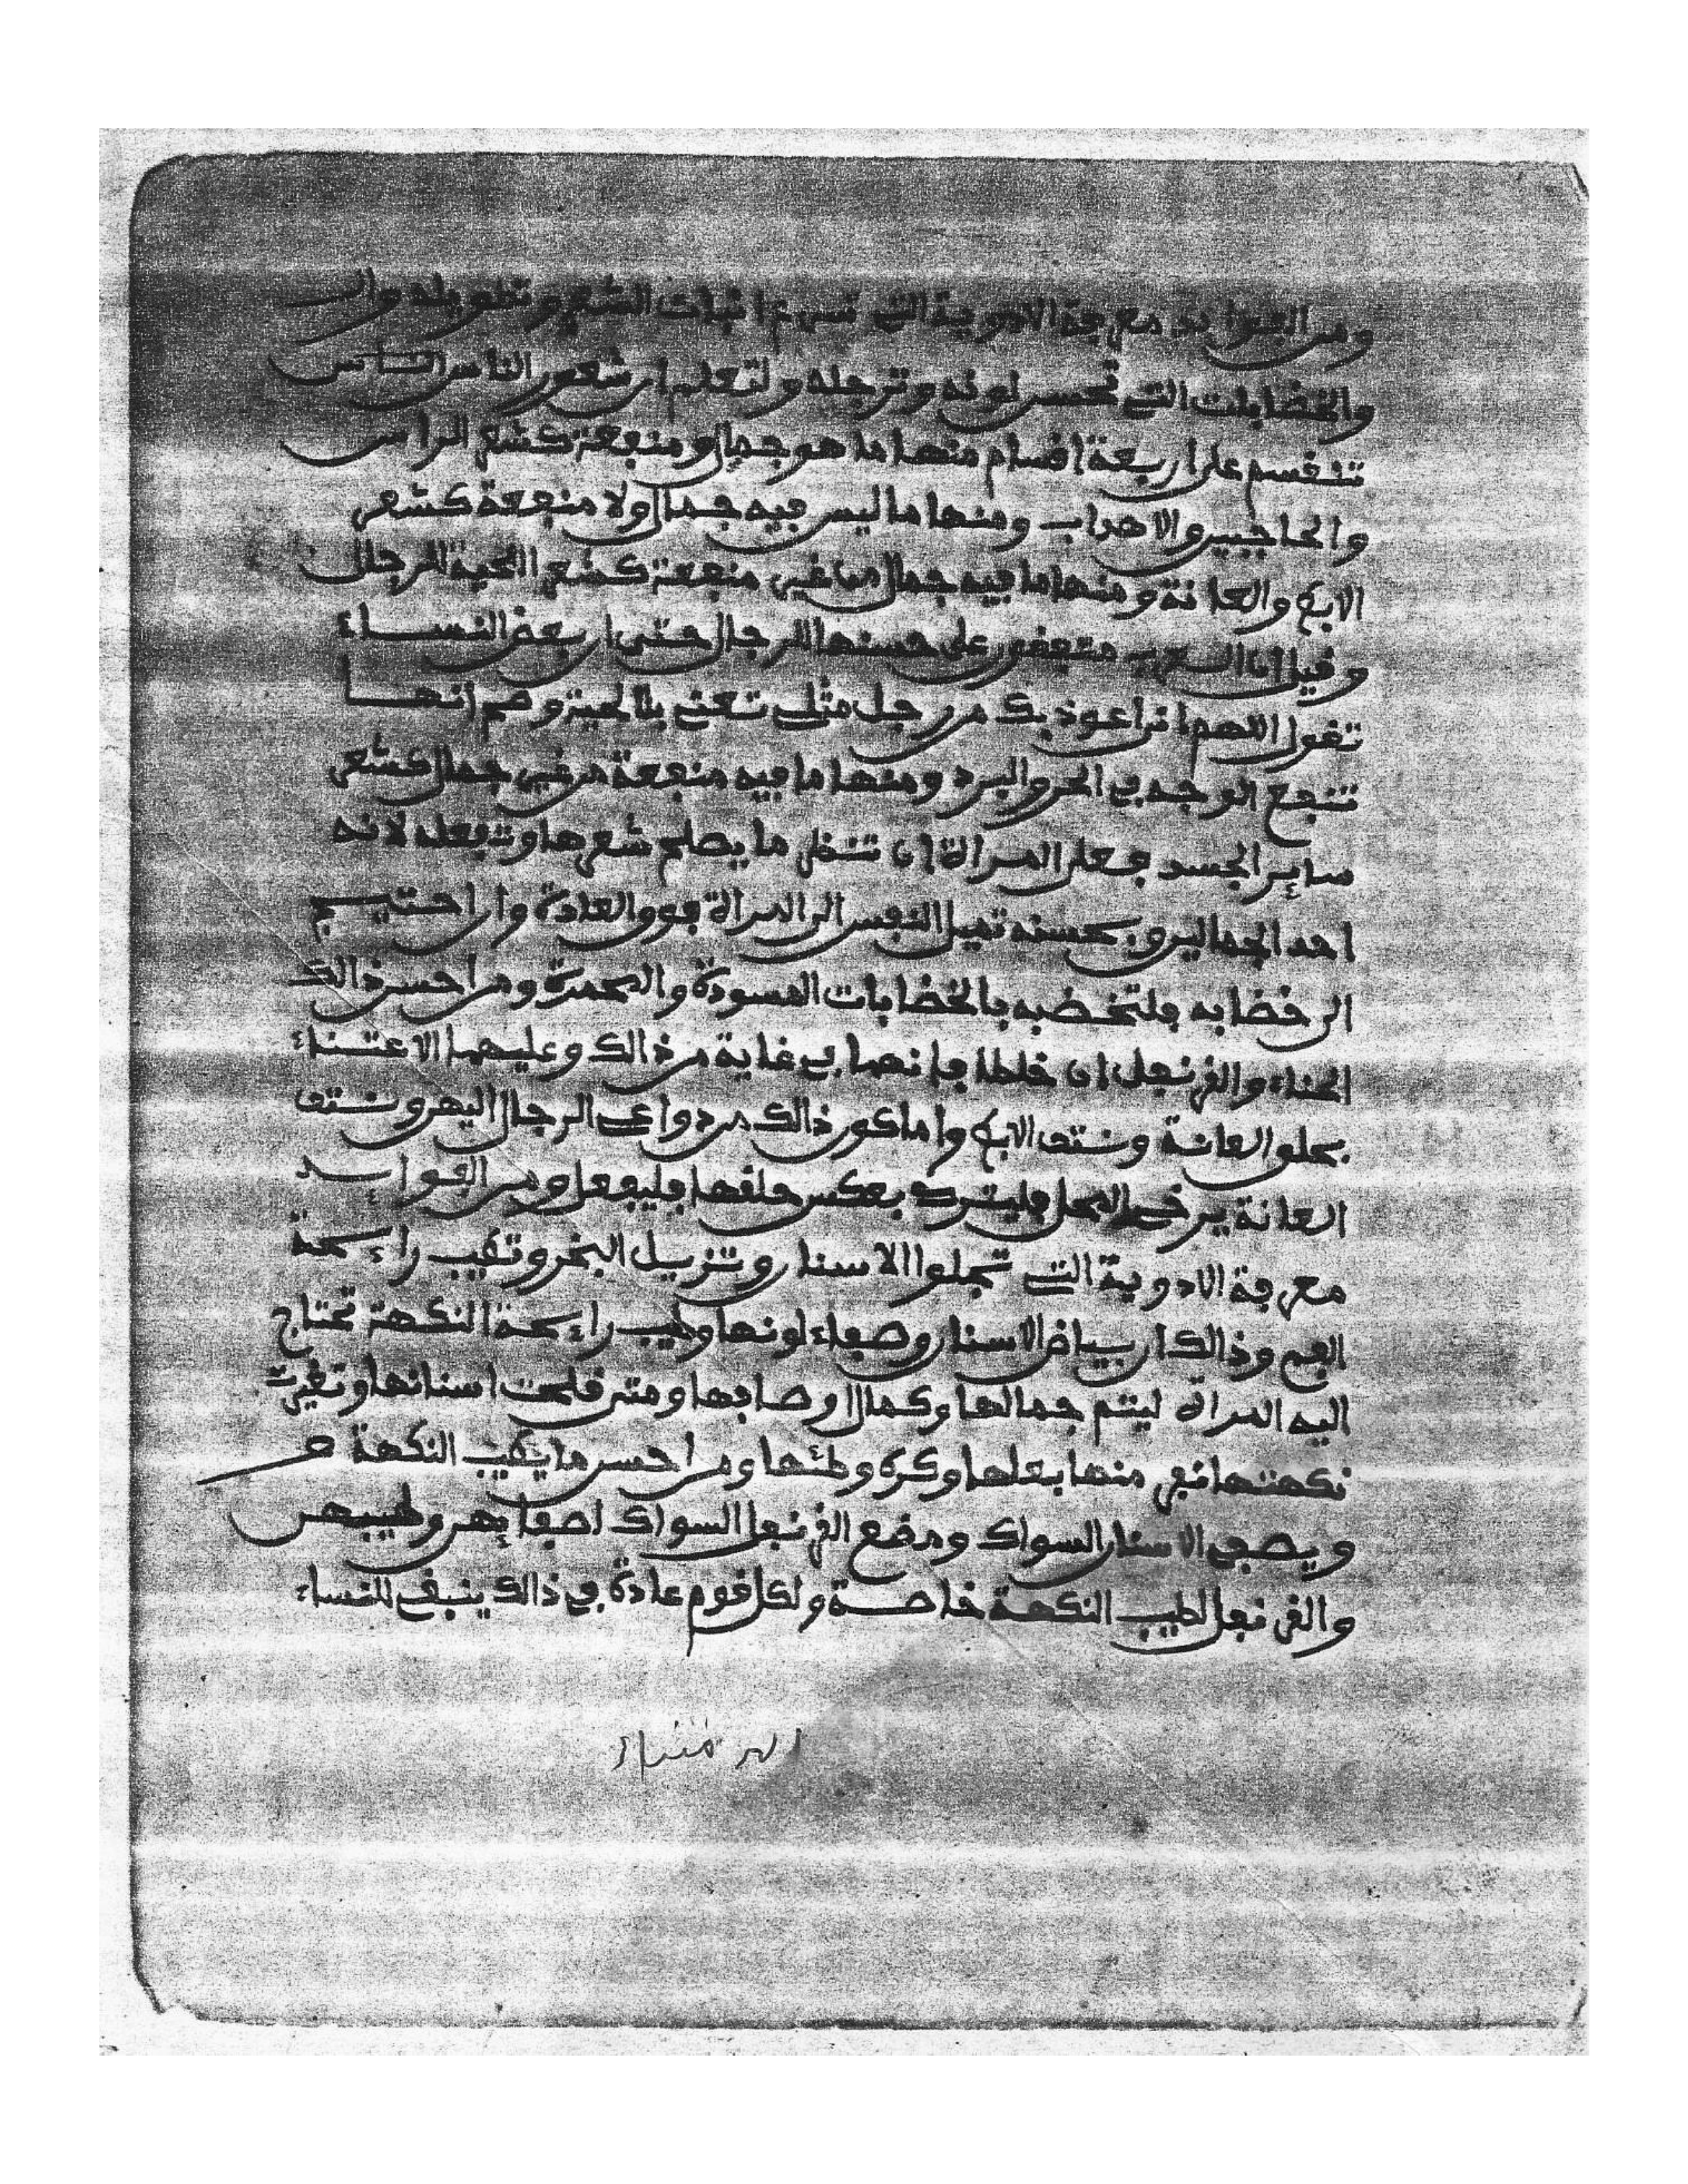 ومن الفوائد معرفة الادوية التي تسرع انبات الشعر وتطويله وال
والخضابات التي تحسن لونه وترجله ولتعلم ان شعور الناس الناس
تنقسم على اربعة اقسام منها ما هو جمال ومنفعة كشعر الراس
والحاجبين والاهداب ومنها ما ليس فيه جمال ولا منفعة كشعر
الابط والعانة ومنها ما فيه جمال من غير منفعة كشعر اللحية للرجال
وقيل ان العرب متعفون على حسنها للرجال حتى ان بعض النساء
تقول اللهم اني اعوذ بك من رجل مثلي تعني بلا لحية وهم انها
تنفع الوجه في الحر والبرد ومنها ما فيه منفعة من غير جمال كشعر
ساير الجسد فعلى المراة ان تنظر ما يصلح شعرها وتفعله لانه
احد الجمالين وبحسنه تميل النفس الى المراة فوق العادة وان احتيج
الى خضابه فلتخضبه بالخضابات المسودة والمحمرة ومن احسن ذالك
الحناء والقرنفل ان خلطا فانهما في غاية من ذالك وعليهما الاعتناء
بحلق العانة ونتف الابط واما كون ذالك من دواعي الرجال اليهن ونتف
العانة يرخي المحل فليترك بعكس حلقها فليفعل ومن الفوايد
معرفة الادوية التي تجلوا الاسنان وتزيل البخر وتطيب راءحة
الفم وذالك ان بياض الاسنان وصفاء لونها وطيب راءحة النكهة تحتاج
اليه المراة ليتم جمالها وكمال اوصافها ومتى قلحت اسنانها وتغيرت
نكهتها نفر منها بعلها وكره وطئها ومن احسن ما يطيب النكهة
ويصفي الاسنان السواك ومضغ القرنفل السواك اصفايهن وطيبهن
والقرنفل لطيب النكهة خاصة ولكل قوم عادة في ذالك ينبغي للنساء